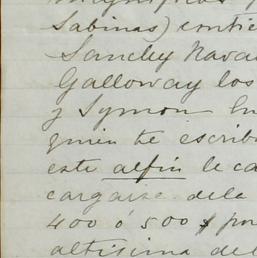 Sabinas)
Sanchez Nava
Galloway los
y Symon
quien te escrib
este alfin le ca
cargaise dele
400 ó 500 $ por
altisima del